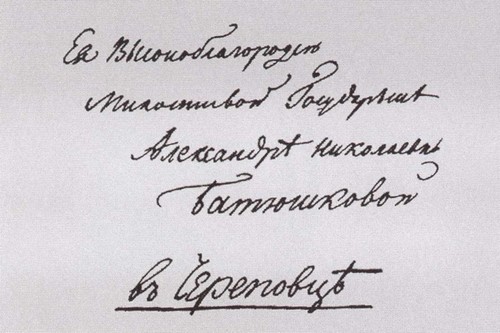 Ея Высокоблагородію
Милостивой Государынѣ
Александрѣ Николаевнѣ
Батюшковой
въ Череповцѣ